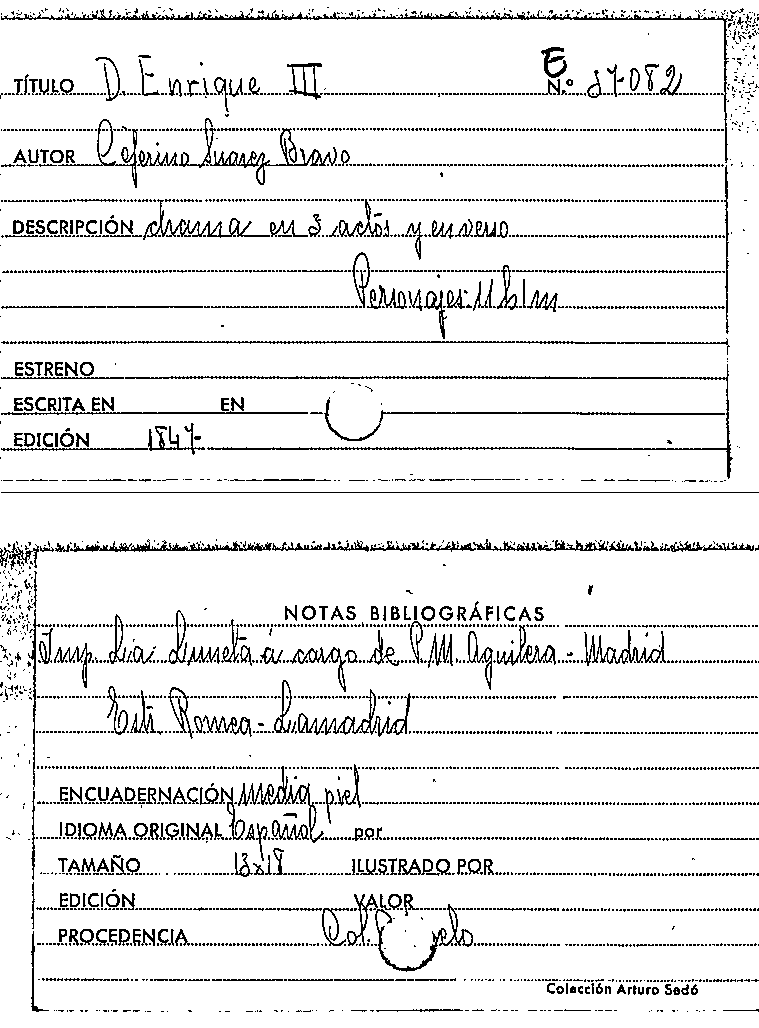 TÍTULO D. Enrique III E N.º 37-082
AUTOR Ceferino Suárez Bravo
DESCRIPCIÓN drama en 3 actos y en verso
Personajes: 11 h 1 m
ESTRENO
ESCRITA EN EN
EDICIÓN 1847-
NOTAS BIBLIOGRÁFICAS
Imp. La Luneta á cargo de P.M. Aguilera - Madrid
Estr. Romea - Lamadrid
ENCUADERNACIÓN media piel
IDIOMA ORIGINAL Español por
TAMAÑO 13x18 ILUSTRADO POR
EDICIÓN VALOR
PROCEDENCIA Col.
Colección Arturo Sedó